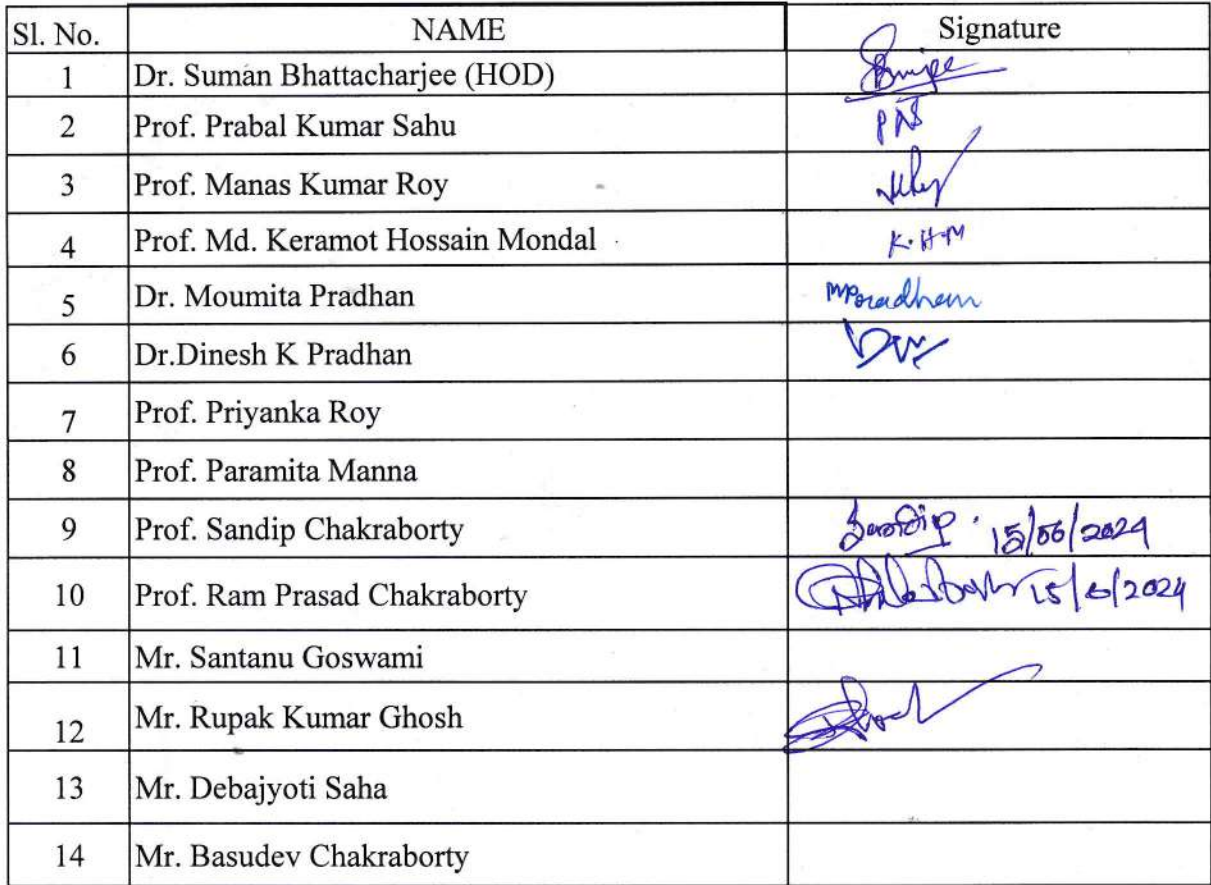 Sl. No. NAME Signature
1 Dr. Suman Bhattacharjee (HOD)
2 Prof. Prabal Kumar Sahu PNS
3 Prof. Manas Kumar Roy
4 Prof. Md. Keramot Hossain Mondal K.H.M
5 Dr. Moumita Pradhan MPradhan
6 Dr.Dinesh K Pradhan
7 Prof. Priyanka Roy
8 Prof. Paramita Manna
9 Prof. Sandip Chakraborty Sandip . 15/06/2024
10 Prof. Ram Prasad Chakraborty 15/6/2024
11 Mr. Santanu Goswami
12 Mr. Rupak Kumar Ghosh
13 Mr. Debajyoti Saha
14 Mr. Basudev Chakraborty